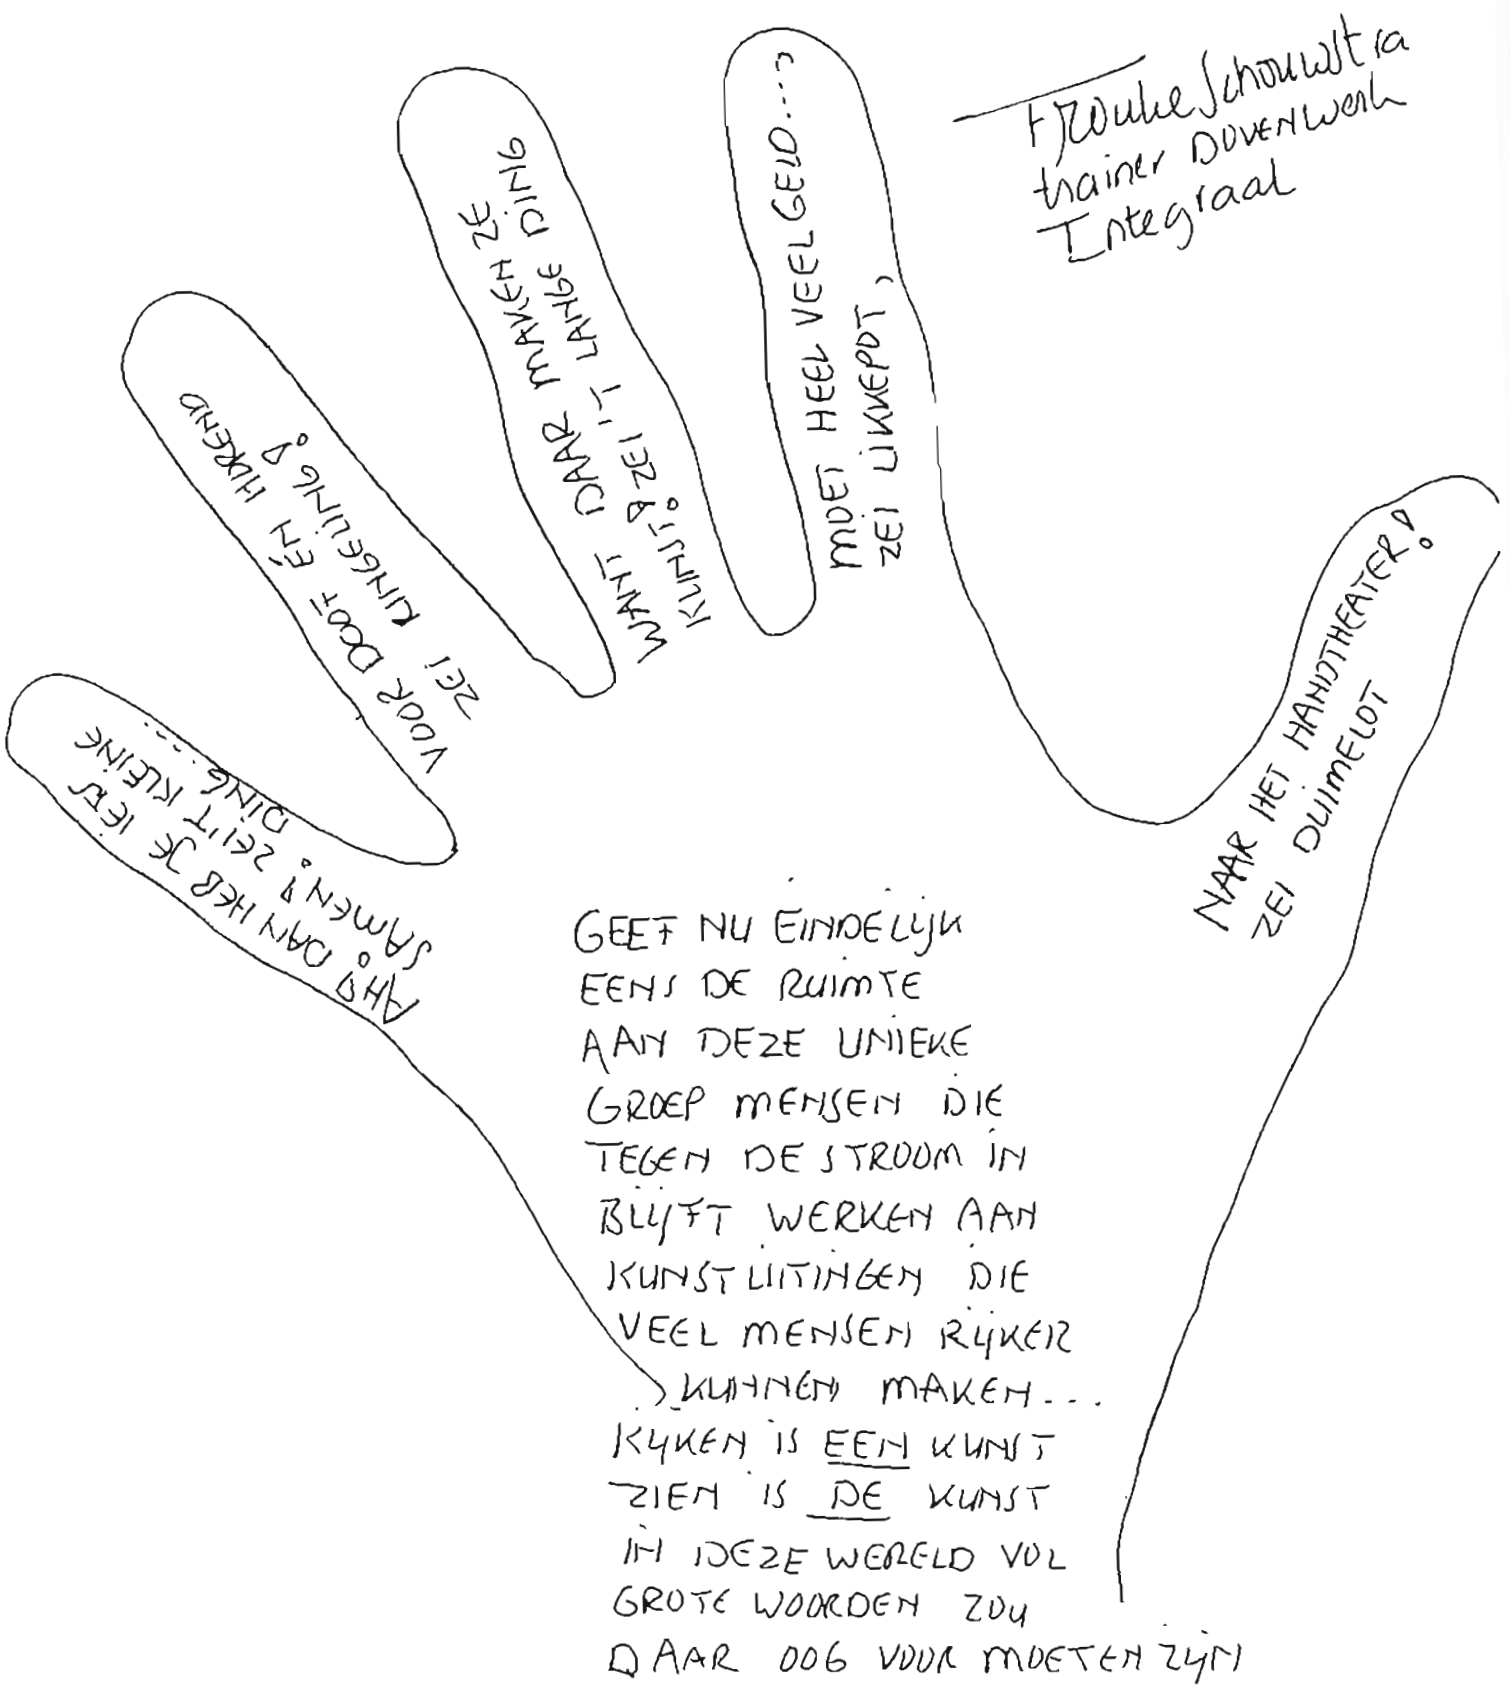 Frouke Schouwstra
trainer DOVENWERK
Integraal
NAAR HET HANDTHEATER!
ZEI DUIMELOT
MOET HEEL VEEL GELD....,
ZEI LIKKEPOT,
WANT DAAR MAKEN ZE
KUNST! ZEI 'T LANGE DING
VOOR DOOF ÉN HOREND
ZEI RINGELING!
AH! DAN HEB JE IETS
SAMEN! ZEI 'T KLEINE
DING.....
GEEF NU EINDELIJK
EENS DE RUIMTE
AAN DEZE UNIEKE
GROEP MENSEN DIE
TEGEN DE STROOM IN
BLIJFT WERKEN AAN
KUNSTUITINGEN DIE
VEEL MENSEN RIJKER
KUNNEN MAKEN...
KIJKEN IS EEN KUNST
ZIEN IS DE KUNST
IN DEZE WERELD VOL
GROTE WOORDEN ZOU
DAAR OOG VOOR MOETEN ZIJN